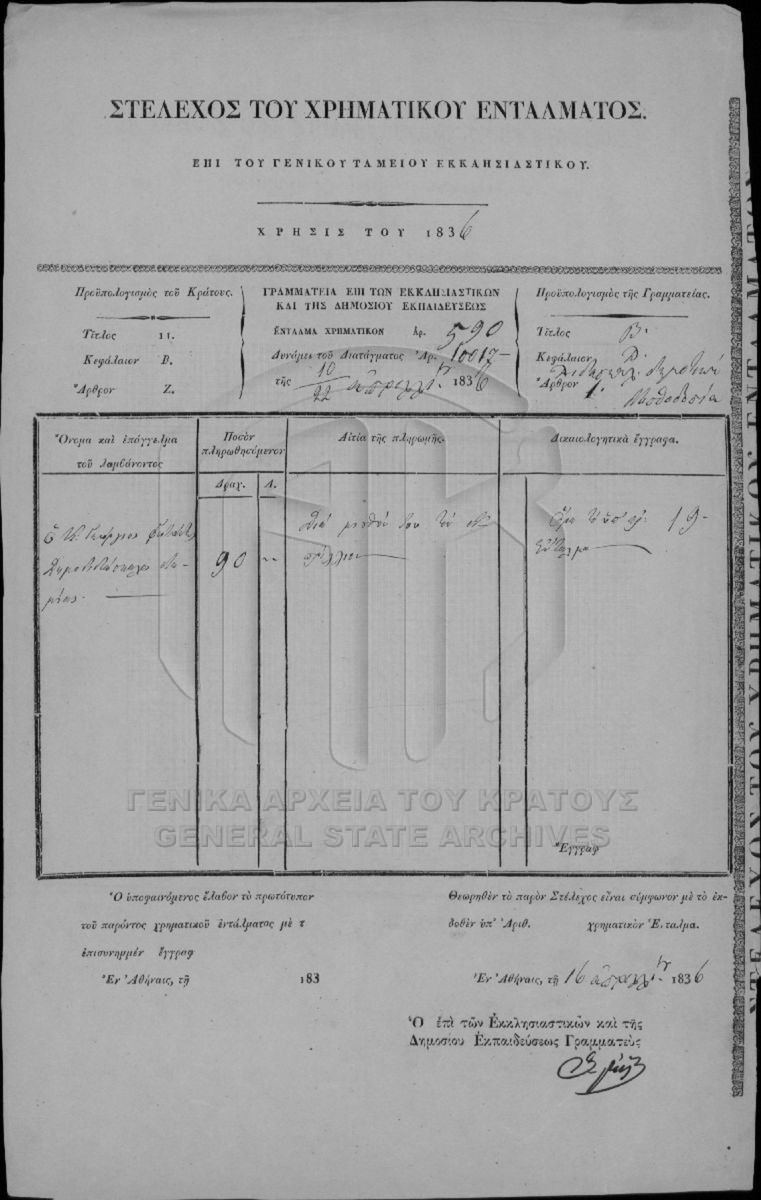 ΣΤΕΛΕΧΟΣ ΤΟΥ ΧΡΗΜΑΤΙΚΟΥ ΕΝΤΑΛΜΑΤΟΣ.
ΕΠΙ ΤΟΥ ΓΕΝΙΚΟΥ ΤΑΜΕΙΟΥ ΕΚΚΛΗΣΙΑΣΤΙΚΟΥ.
ΧΡΗΣΙΣ ΤΟΥ 1836
Προϋπολογισμὸς τοῦ Κράτους.
Τίτλος 11.
Κεφάλαιον Β.
Ἄρθρον Ζ.
ΓΡΑΜΜΑΤΕΙΑ ΕΠΙ ΤΩΝ ΕΚΚΛΗΣΙΑΣΤΙΚΩΝ
ΚΑΙ ΤΗΣ ΔΗΜΟΣΙΟΥ ΕΚΠΑΙΔΕΥΣΕΩΣ
ΕΝΤΑΛΜΑ ΧΡΗΜΑΤΙΚΟΝ Ἀρ. 590
Δυνάμει τοῦ Διατάγματος Ἀρ. 10017-
τῆς 10/22 ἀπριλλίου 1836
Προϋπολογισμὸς τῆς Γραμματείας.
Τίτλος Β.
Κεφάλαιον
Ἄρθρον 1.
Μισθοδοσία
Ὄνομα καὶ ἐπάγγελμα
τοῦ λαμβάνοντος
Ποσὸν
πληρωθησόμενον
Δραχ. Λ.
Αἰτία τῆς πληρωμῆς.
Δικαιολογητικὰ ἔγγραφα.
Ὁ Κ. Γεώργιος
Δημοδιδάσκαλος
90 --
Διὰ μισθόν του τὸν
ἀπρίλλιον
ὑπ' ἀρ. 19-
ἔνταλμα
Ἔγγραφ
Ὁ ὑποφαινόμενος ἔλαβον τὸ πρωτότυπον
τοῦ παρόντος χρηματικοῦ ἐντάλματος μὲ τ
ἐπισυνημμέν ἔγγραφ
Ἐν Ἀθήναις, τῇ 183
Θεωρηθὲν τὸ παρὸν Στέλεχος εἶναι σύμφωνον μὲ τὸ ἐκ-
δοθὲν ὑπ' Ἀριθ. χρηματικὸν Ἔνταλμα.
Ἐν Ἀθήναις, τῇ 16 ἀπριλλίου 1836
Ὁ ἐπὶ τῶν Ἐκκλησιαστικῶν καὶ τῆς
Δημοσίου Ἐκπαιδεύσεως Γραμματεὺς
ΣΤΕΛΕΧΟΣ ΤΟΥ ΧΡΗΜΑΤΙΚΟΥ ΕΝΤΑΛΜΑΤΩΝ
ΓΕΝΙΚΑ ΑΡΧΕΙΑ ΤΟΥ ΚΡΑΤΟΥΣ
GENERAL STATE ARCHIVES